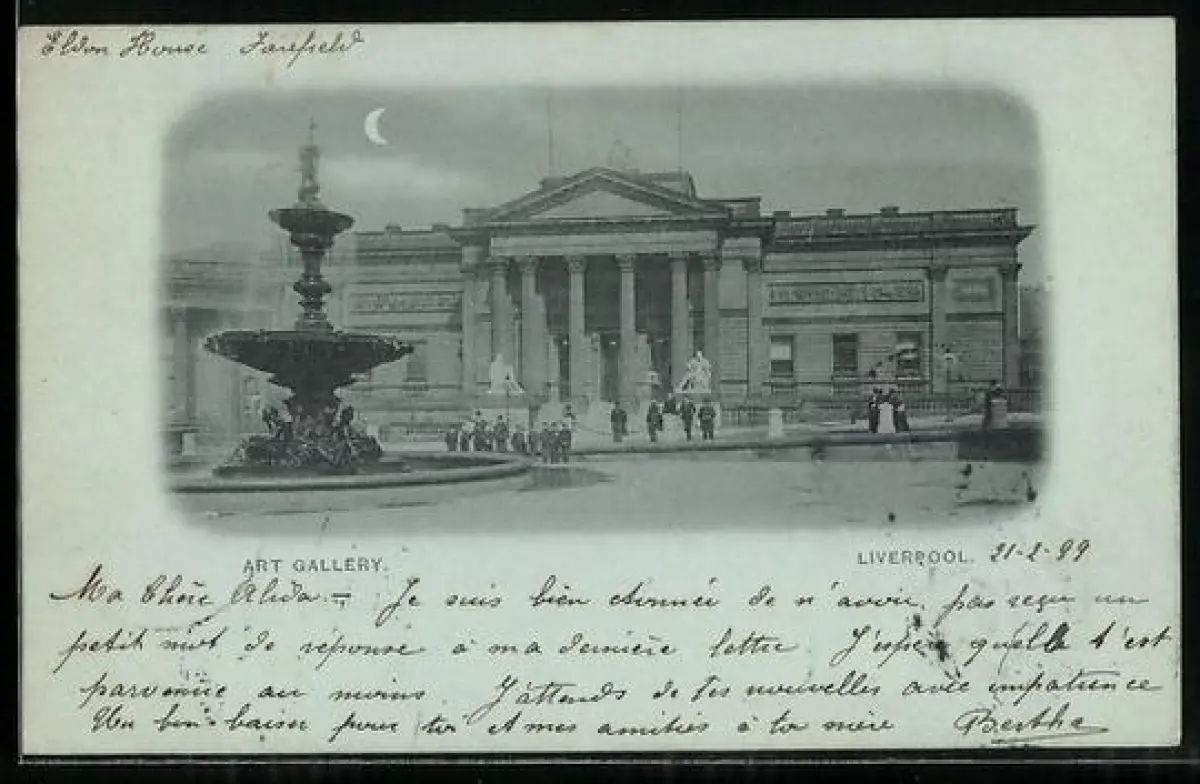 Eldon House Fairfield
ART GALLERY.
LIVERPOOL. 21-2-99
Ma Chère Alida. – Je suis bien étonnée de n'avoir pas reçu un
petit mot de réponse à ma dernière lettre. J'espère qu'elle t'est
parvenue au moins. J'attends de tes nouvelles avec impatience
Un bon baiser pour toi et mes amitiés à ta mère Bertha